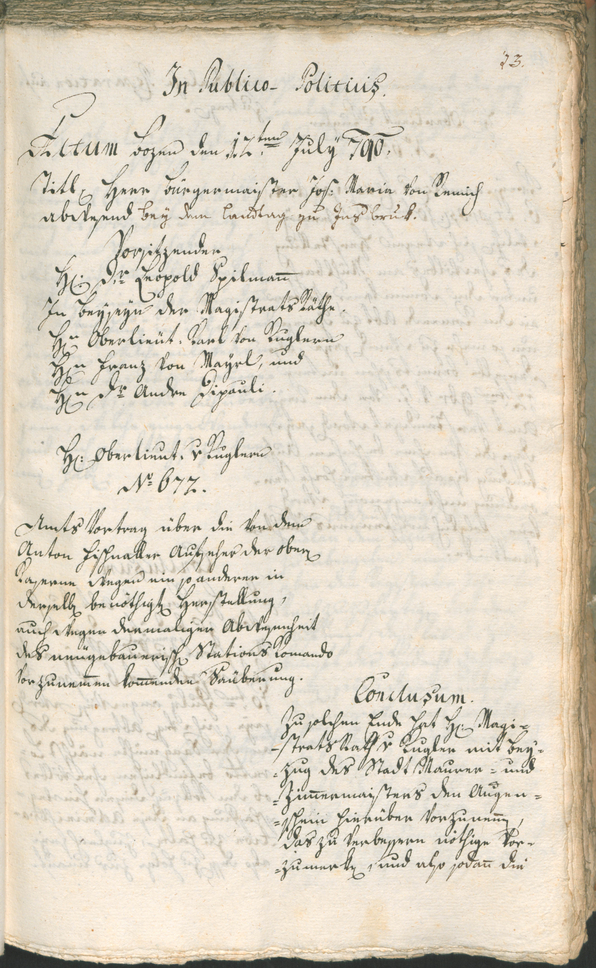 23.
In Publico-Politicis.
Actum Bozen den 12ten July 790.
Titl Herr Bürgermaister Jos: Maria von Remich
abwesend bey dem Landtag zu Insbruk.
Vorsitzender
H: Dr Leopold Spilmann
In beyseyn der Magistrats Räthe.
Hn Oberlieut. Karl von Kuglern
Hn Franz von Mayrl, und
Hn Dr Andre Dipauli.
H: Oberlieut. v Kuglern
No 677.
Amts Vortrag über die von dem
Anton Hißnaller Aufseher der obern
Kaserne wegen ein so anderer in
derselb benöthigt Herstellung,
auch wegen dermaligen Abwesenheit
des neugebaurisch Stations Comando
vorzunemmen kommenden Sauberung.
Conclusum.
Zu solchem Ende hat H: Magi-
-strats Rath v Kugler mit bey-
-zug des Stadt Maurer- und
-Zimmermaisters den Augen-
-schein hierüber vorzunemm,
das zu verbessern nöthige vor-
-zumerk, und also sodann die